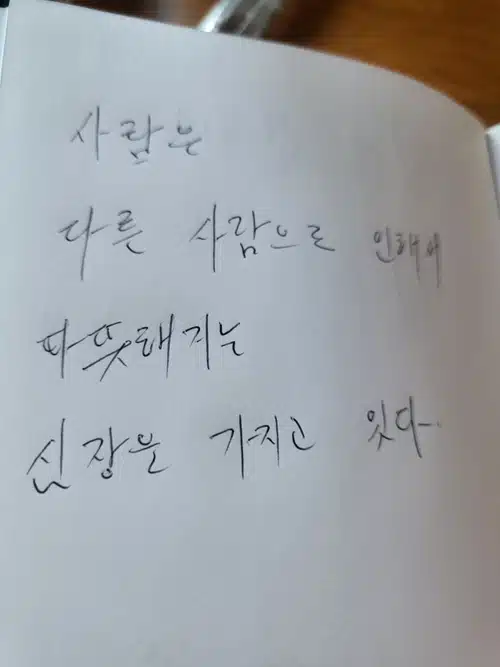 사람은
다른 사람으로 인해서
따뜻해지는
심장을 가지고 있다.